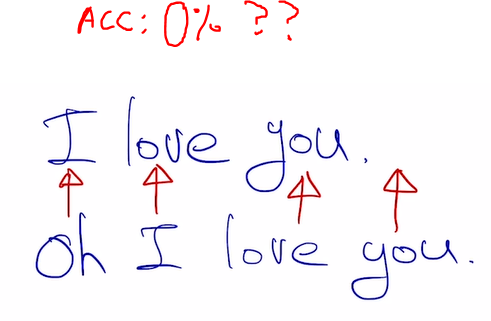 ACC: 0% ??
I love you.
Oh I love you.